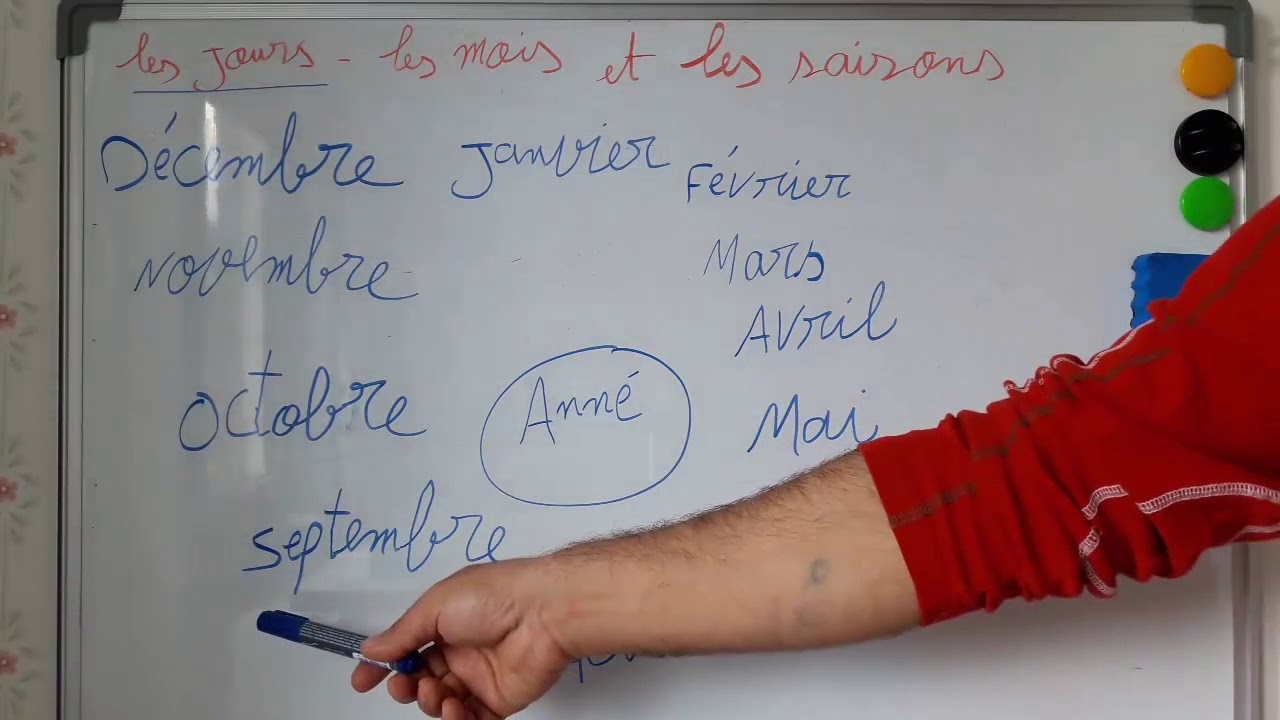 les jours - les mois et les saisons
Décembre Janvier Février
Novembre
Mars
Avril
octobre
Anné
Mai
septembre